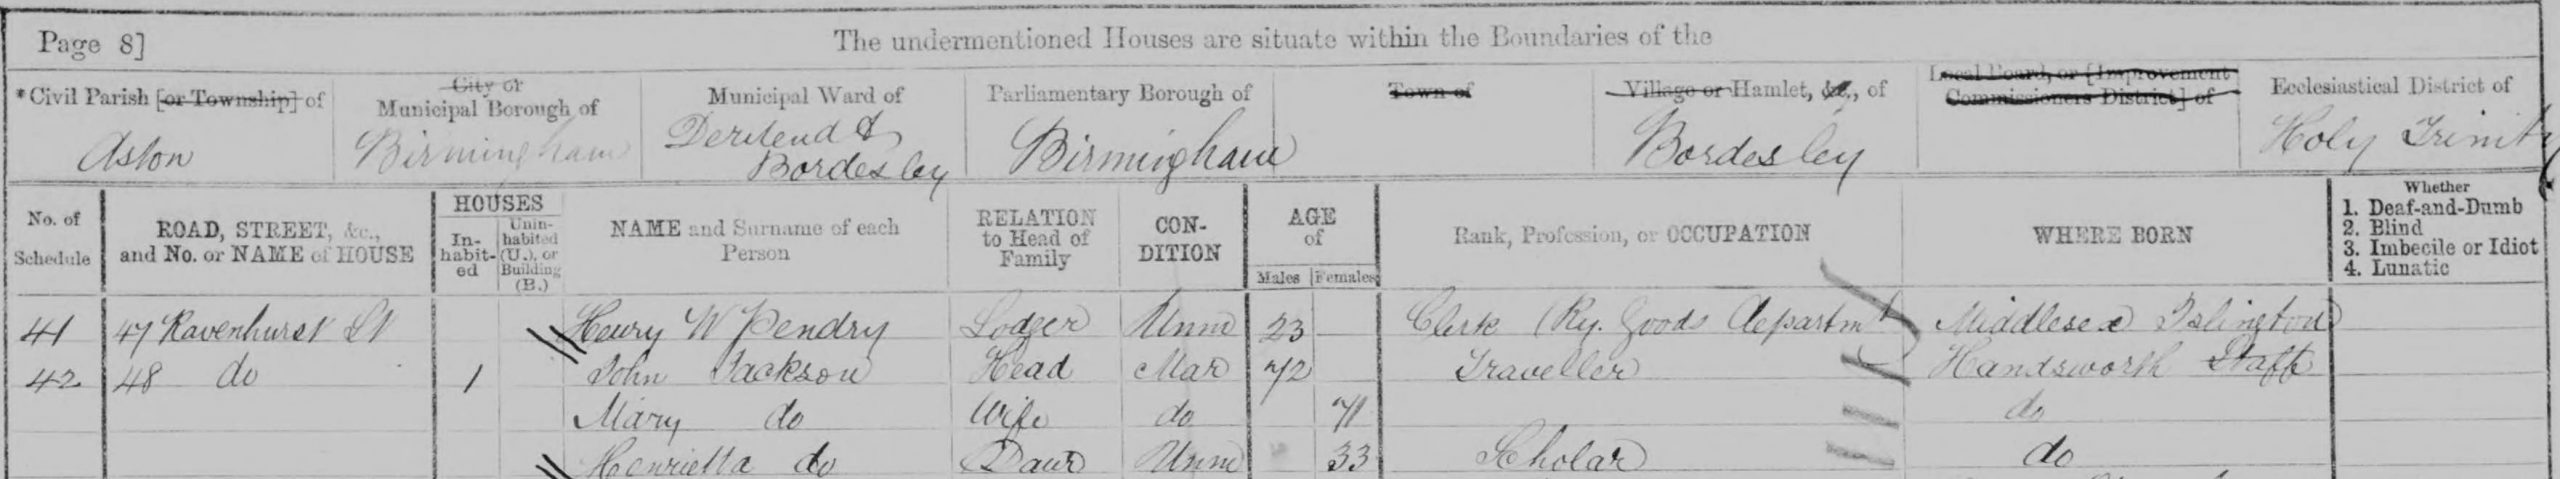 Page 8]
The undermentioned Houses are situate within the Boundaries of the
*Civil Parish [or Township] of
City or Municipal Borough of
Municipal Ward of
Parliamentary Borough of
Town of
Village or Hamlet, &c., of
Local Board, or [Improvement Commissioners District] of
Ecclesiastical District of
Aston
Birmingham
Deritend & Bordesley
Birmingham
Bordesley
Holy Trinity
No. of Schedule
ROAD, STREET, &c., and No. or NAME of HOUSE
HOUSES
In-habit-ed
Unin-habited (U.), or Building (B.)
NAME and Surname of each Person
RELATION to Head of Family
CON-DITION
AGE of
Males
Females
Rank, Profession, or OCCUPATION
WHERE BORN
Whether
1. Deaf-and-Dumb
2. Blind
3. Imbecile or Idiot
4. Lunatic
41 47 Ravenhurst St Henry W Pendry Lodger Unm 23 Clerk (Ry. Goods Departmt) Middlesex Islington
42 48 do 1 John Jackson Head Mar 72 Traveller Handsworth Staff
Mary do Wife do 71 do
Henrietta do Daur Unm 33 Scholar do